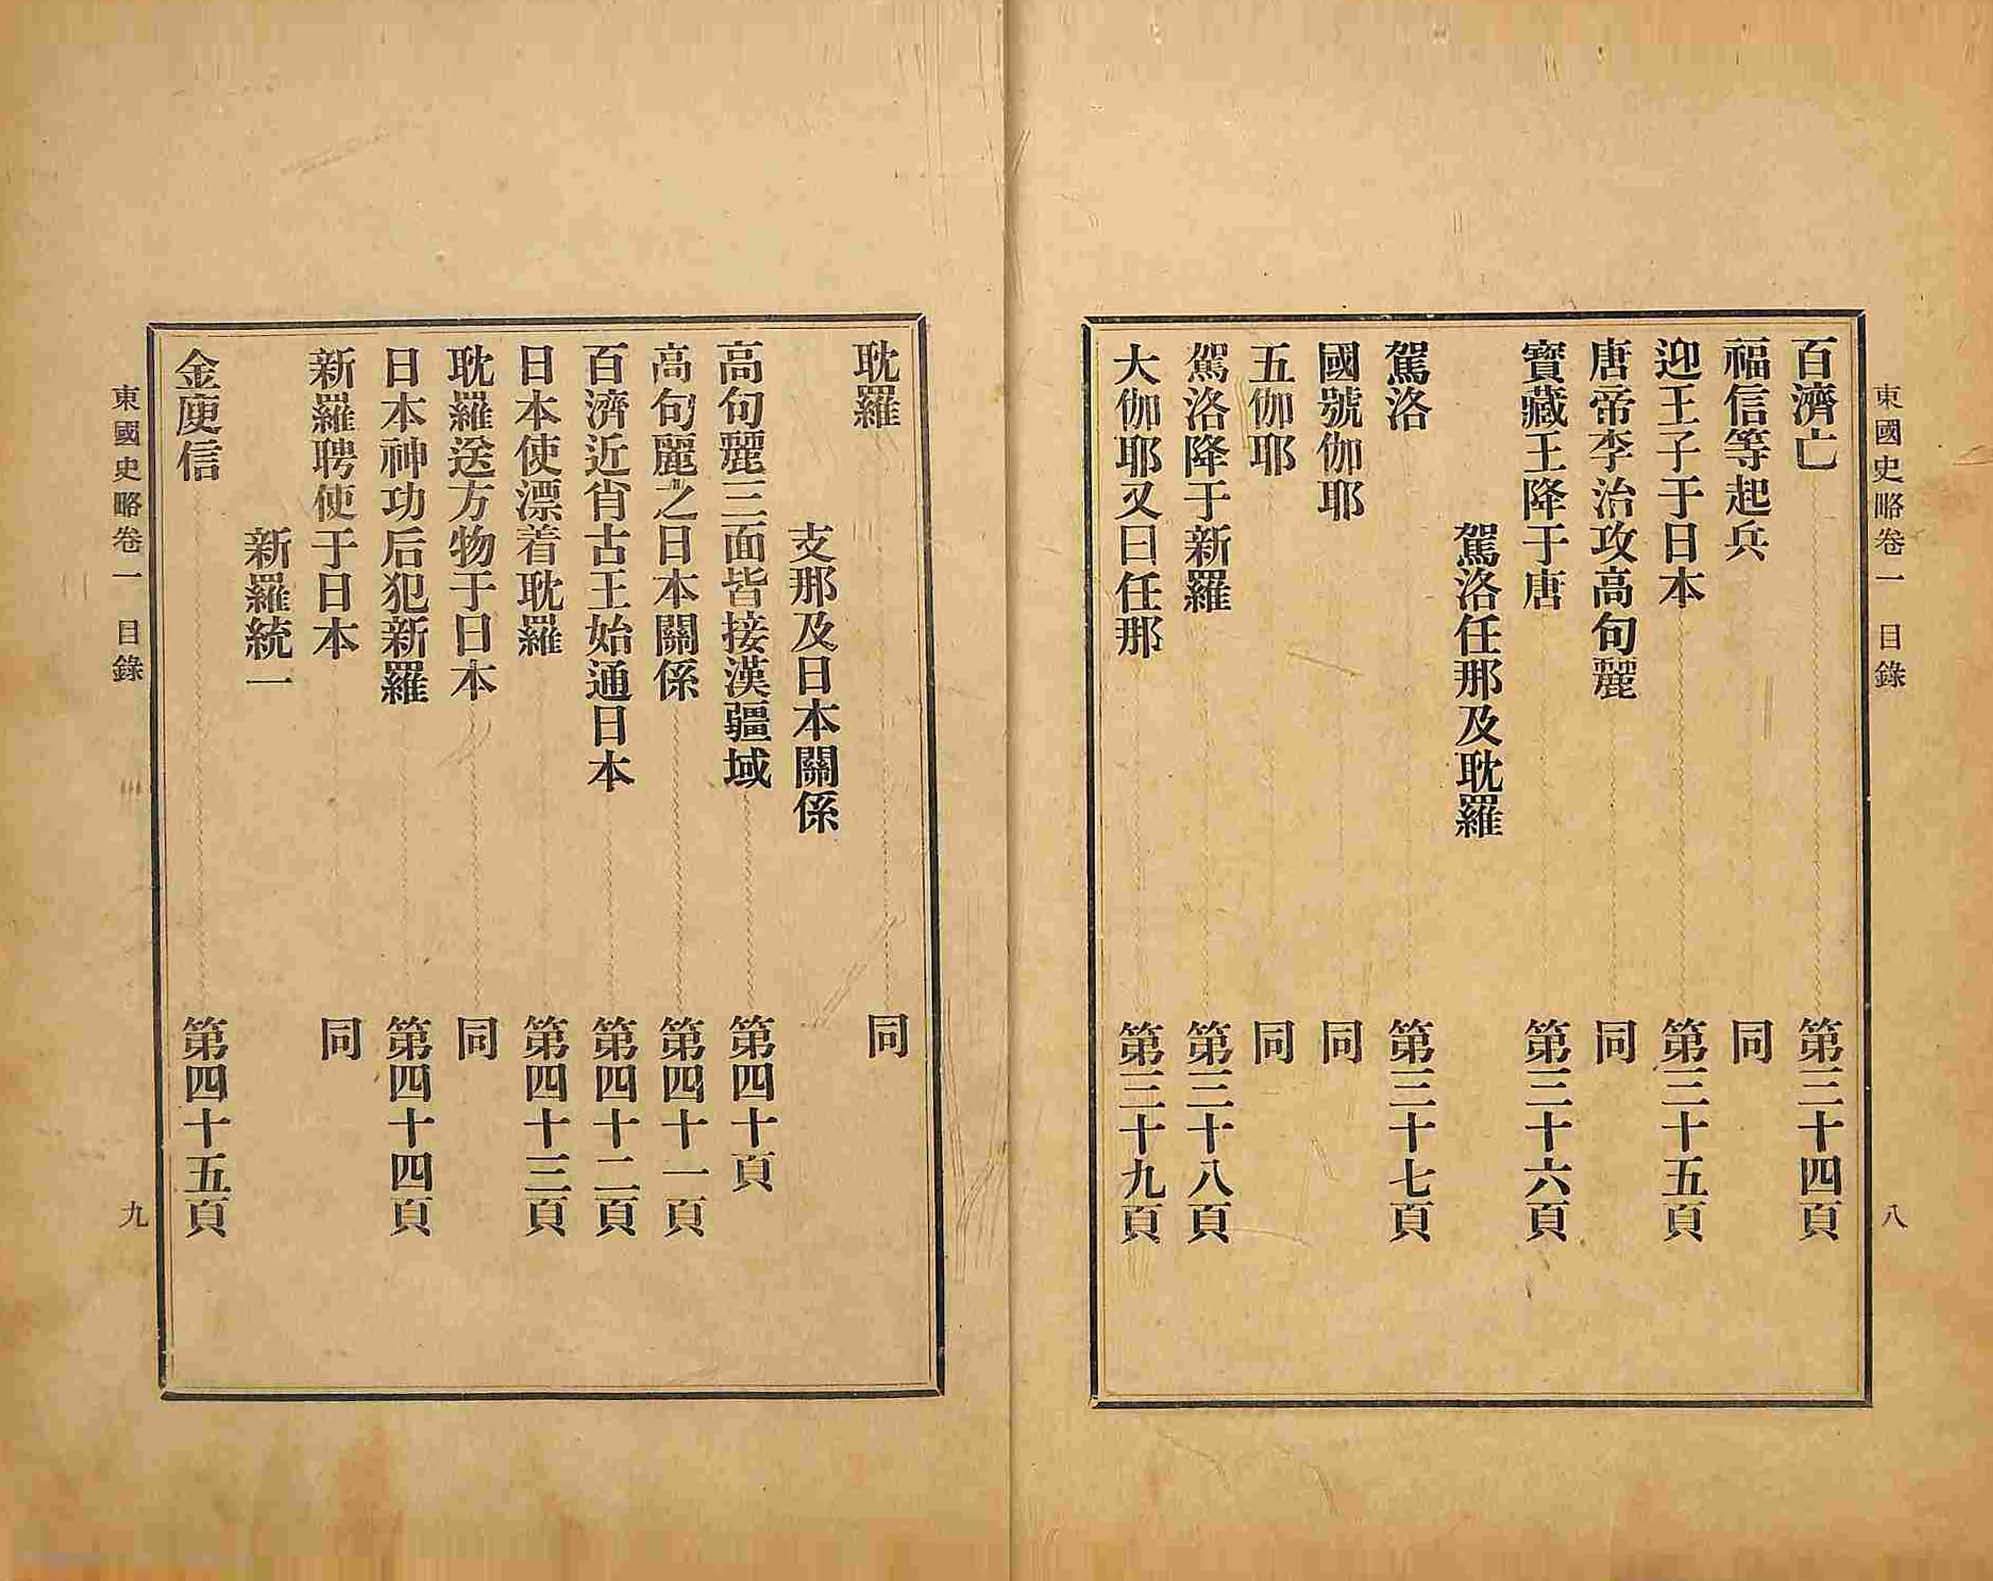 東國史略卷一　目錄
八
百濟亡　第三十四頁
福信等起兵　同
迎王子于日本　第三十五頁
唐帝李治攻高句麗　同
寶藏王降于唐　第三十六頁
駕洛任那及耽羅
駕洛　第三十七頁
國號伽耶　同
五伽耶　同
駕洛降于新羅　第三十八頁
大伽耶又曰任那　第三十九頁
耽羅　同
支那及日本關係
高句麗三面皆接漢疆域　第四十頁
高句麗之日本關係　第四十一頁
百濟近肖古王始通日本　第四十二頁
日本使漂着耽羅　第四十三頁
耽羅送方物于日本　同
日本神功后犯新羅　第四十四頁
新羅聘使于日本　同
新羅統一
金庾信　第四十五頁
東國史略卷一　目錄
九